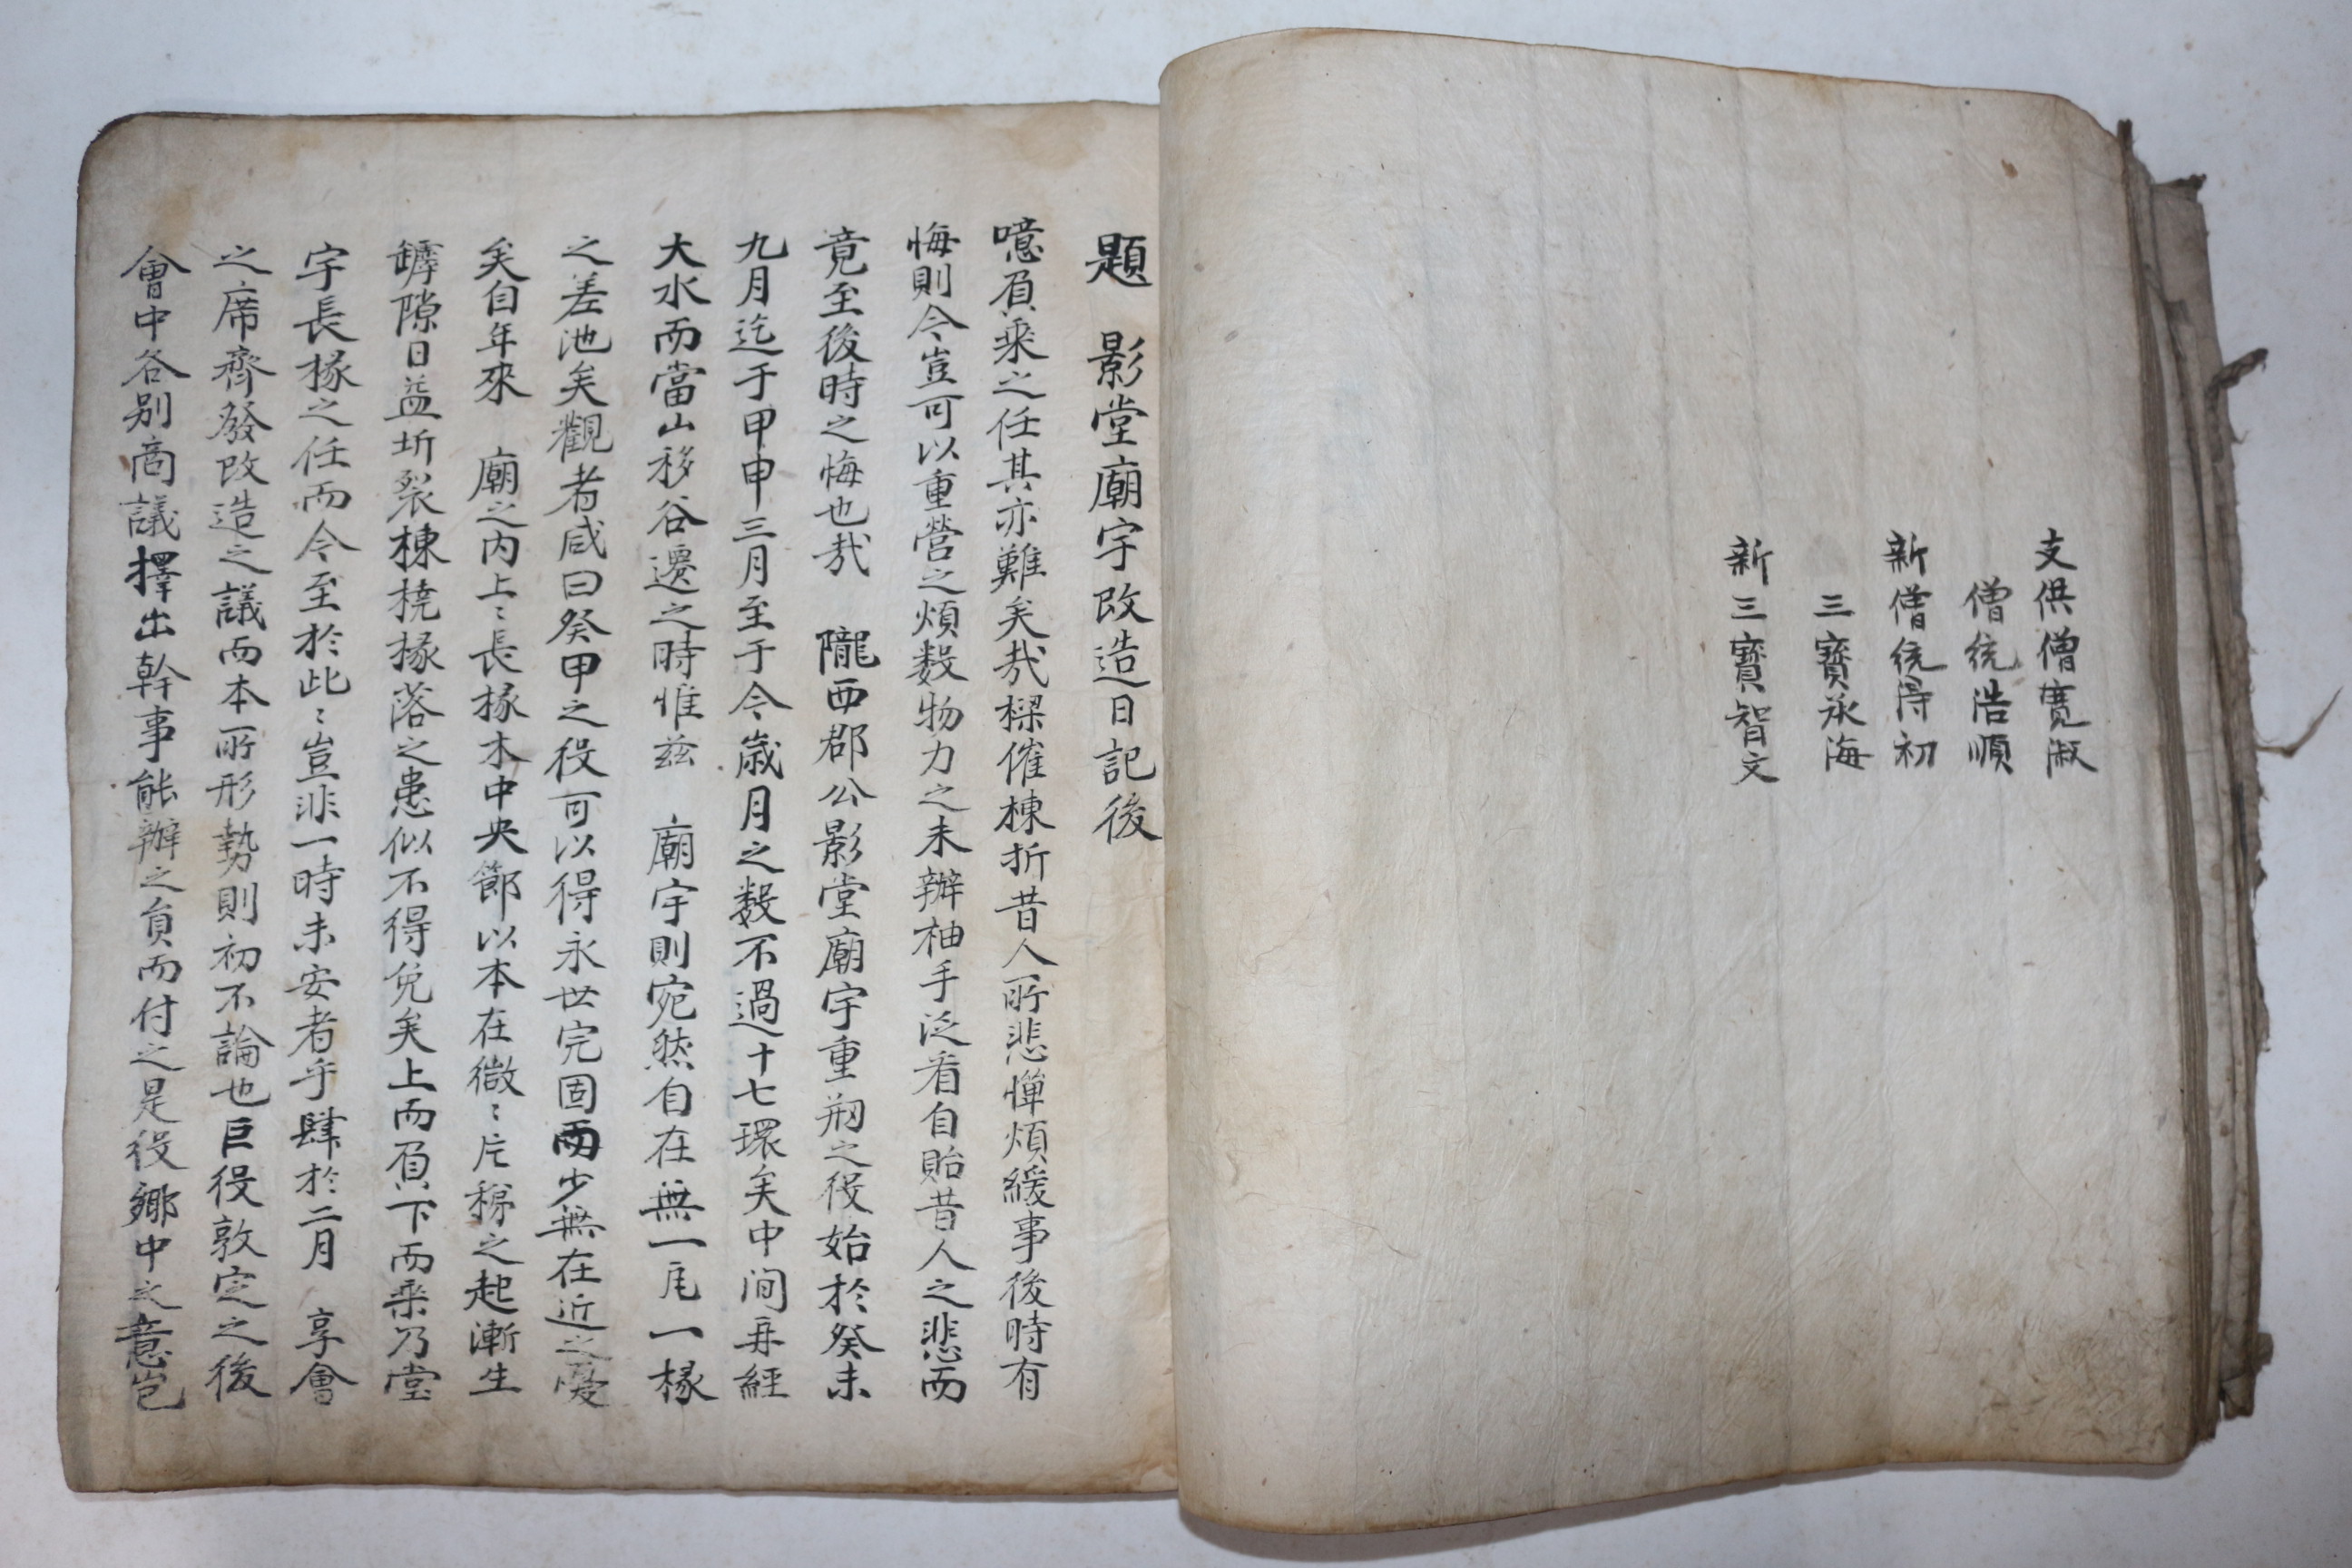 支供僧寛淑
僧統浩順
新僧統得初
三寶承海
新三寶智文
題 影堂廟宇改造日記後
噫負乘之任其亦難矣哉樑催棟折昔人所悲憚煩緩事後時有
悔則今豈可以重營之煩数物力之未辦袖手泛看自貽昔人之悲而
竟至後時之悔也哉 隴西郡公影堂廟宇重刱之役始於癸未
九月迄于甲申三月至于今歲月之数不過十七環矣中间再経
大水而當山移谷邊之時惟兹 廟宇則宛然自在無一瓦一椽
之差池矣觀者咸曰癸甲之役可以得永世完固而少無在近之憂
矣自年來 廟之内上〻長椽木中央節以本在微〻片稊之起漸生
罅隙日益圻裂棟撓椽落之患似不得免矣上而負下而乘乃堂
宇長椽之任而今至於此〻豈非一時未安者乎肆於二月 享會
之席齊發改造之議而本所形勢則初不論也巨役敦定之後
會中各别商議擇出幹事能辦之負而付之是役鄉中之意豈